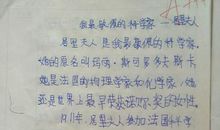 我最敬佩的科学家——居里夫人
居里夫人是我最敬佩的科学家,
她的原名叫玛丽·斯可罗多夫斯卡
她是法国的物理学家和化学家,她
是世界上最早荣获诺贝尔奖的女性。
居里夫人参加法国科学